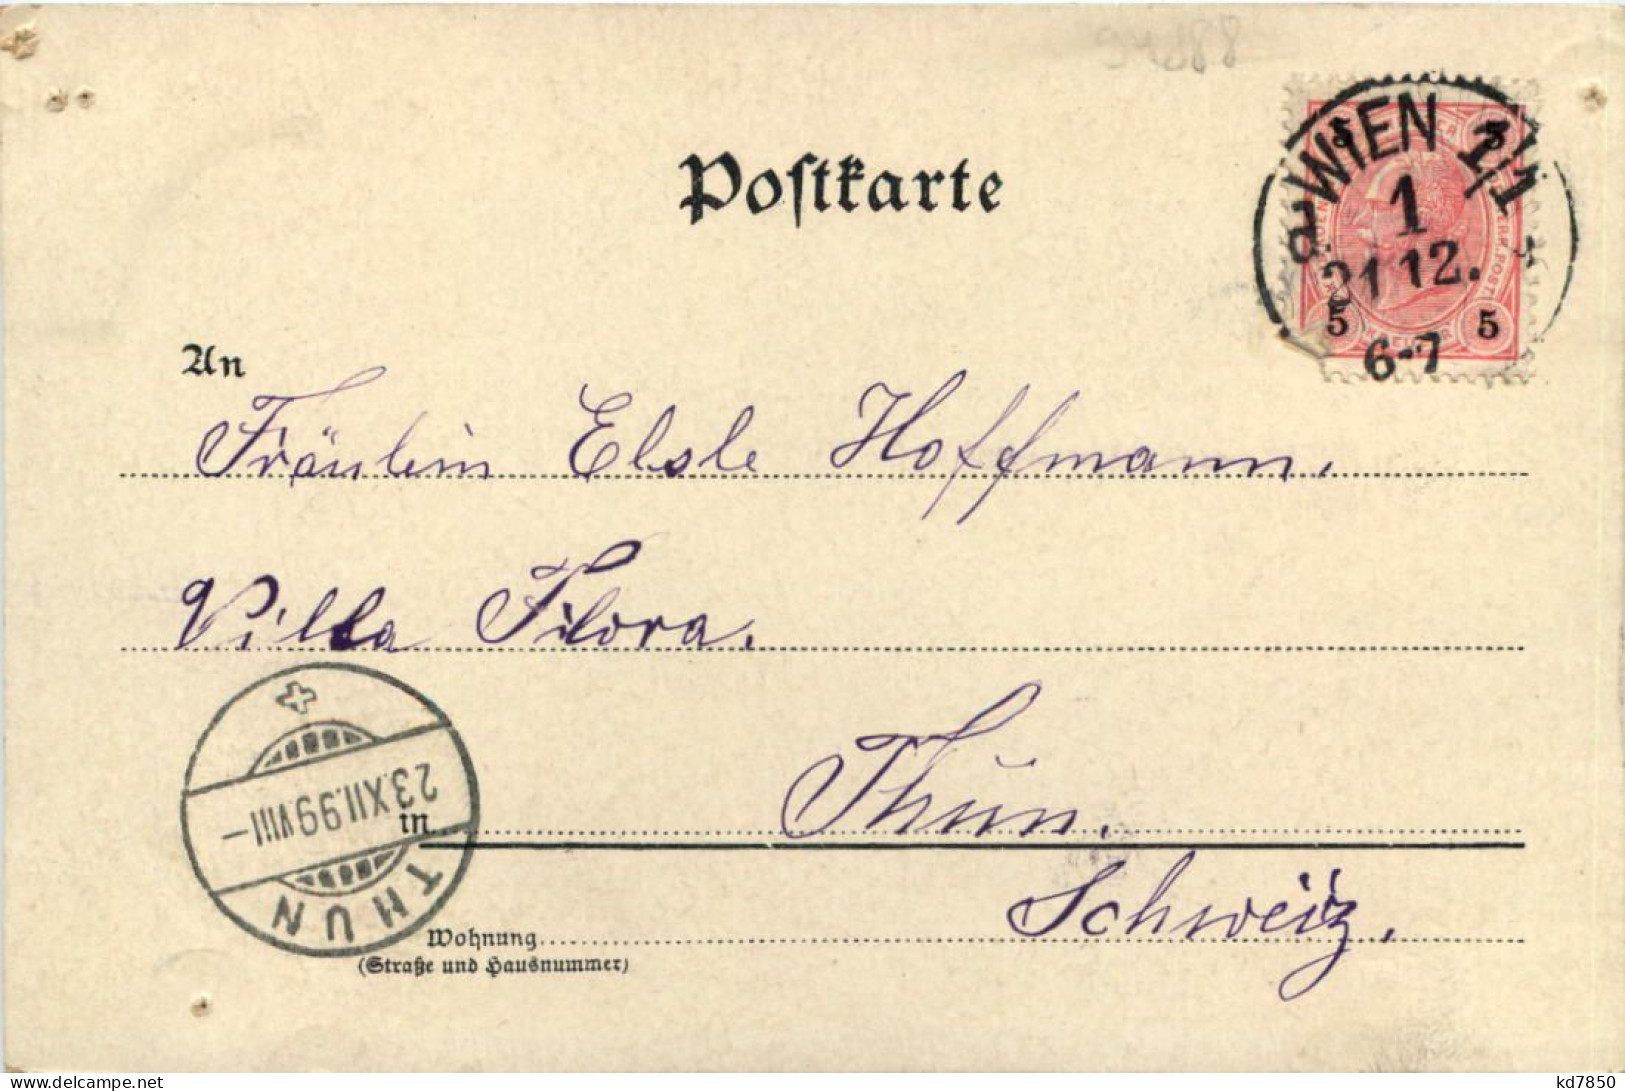 Postkarte
WIEN 1/1
1
21 12.
6-7
5 5
5 5
An
Fräulein Elsle Hoffmann.
Villa Flora.
in Thun.
Schweiz.
Wohnung
(Straße und Hausnummer)
THUN
23.XII.99.VIII–
kd7850